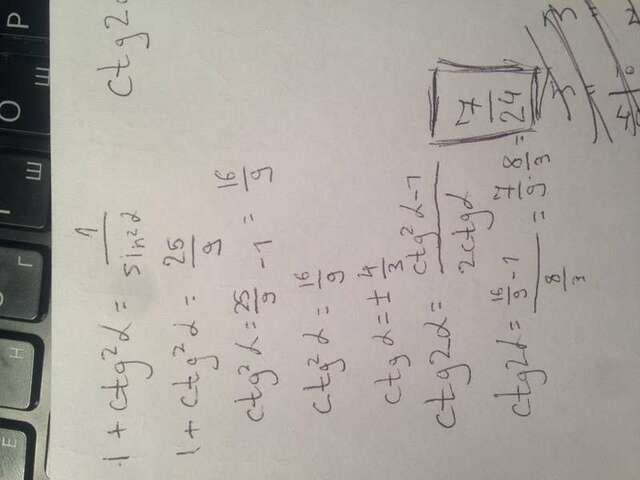 ctg2α
1 + ctg²α = 1/sin²α
1 + ctg²α = 25/9
ctg²α = 25/9 - 1 = 16/9
ctg²α = 16/9
ctgα = ± 4/3
ctg2α = ctg²α-1/2ctgα
ctg2α = 16/9 - 1/8/3 = 7/9 · 8/3 = 7/24
Е
Н
Г
Ш
О
Ш
Р